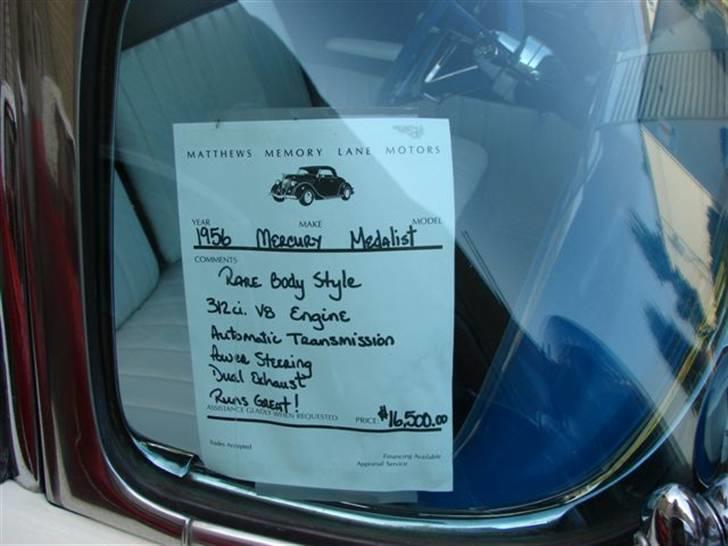 MATTHEWS MEMORY LANE MOTORS
YEAR MAKE MODEL
1956 Mercury Medalist
COMMENTS
Rare Body Style
312ci. V8 Engine
Automatic Transmission
Power Steering
Dual Exhaust
Runs Great!
ASSISTANCE GLADLY WHEN REQUESTED PRICE: $16,500.00
Trades Accepted
Financing Available
Appraisal Service